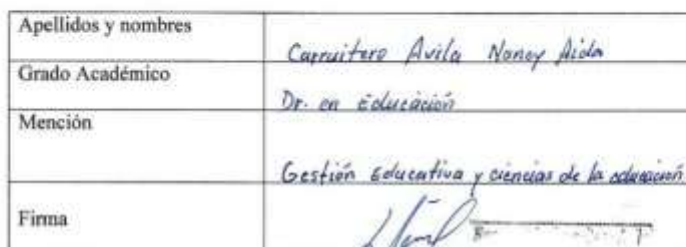 Apellidos y nombres
Carruitero Avila Nancy Aida
Grado Académico
Dr. en Educación
Mención
Gestión Educativa y ciencias de la educación
Firma